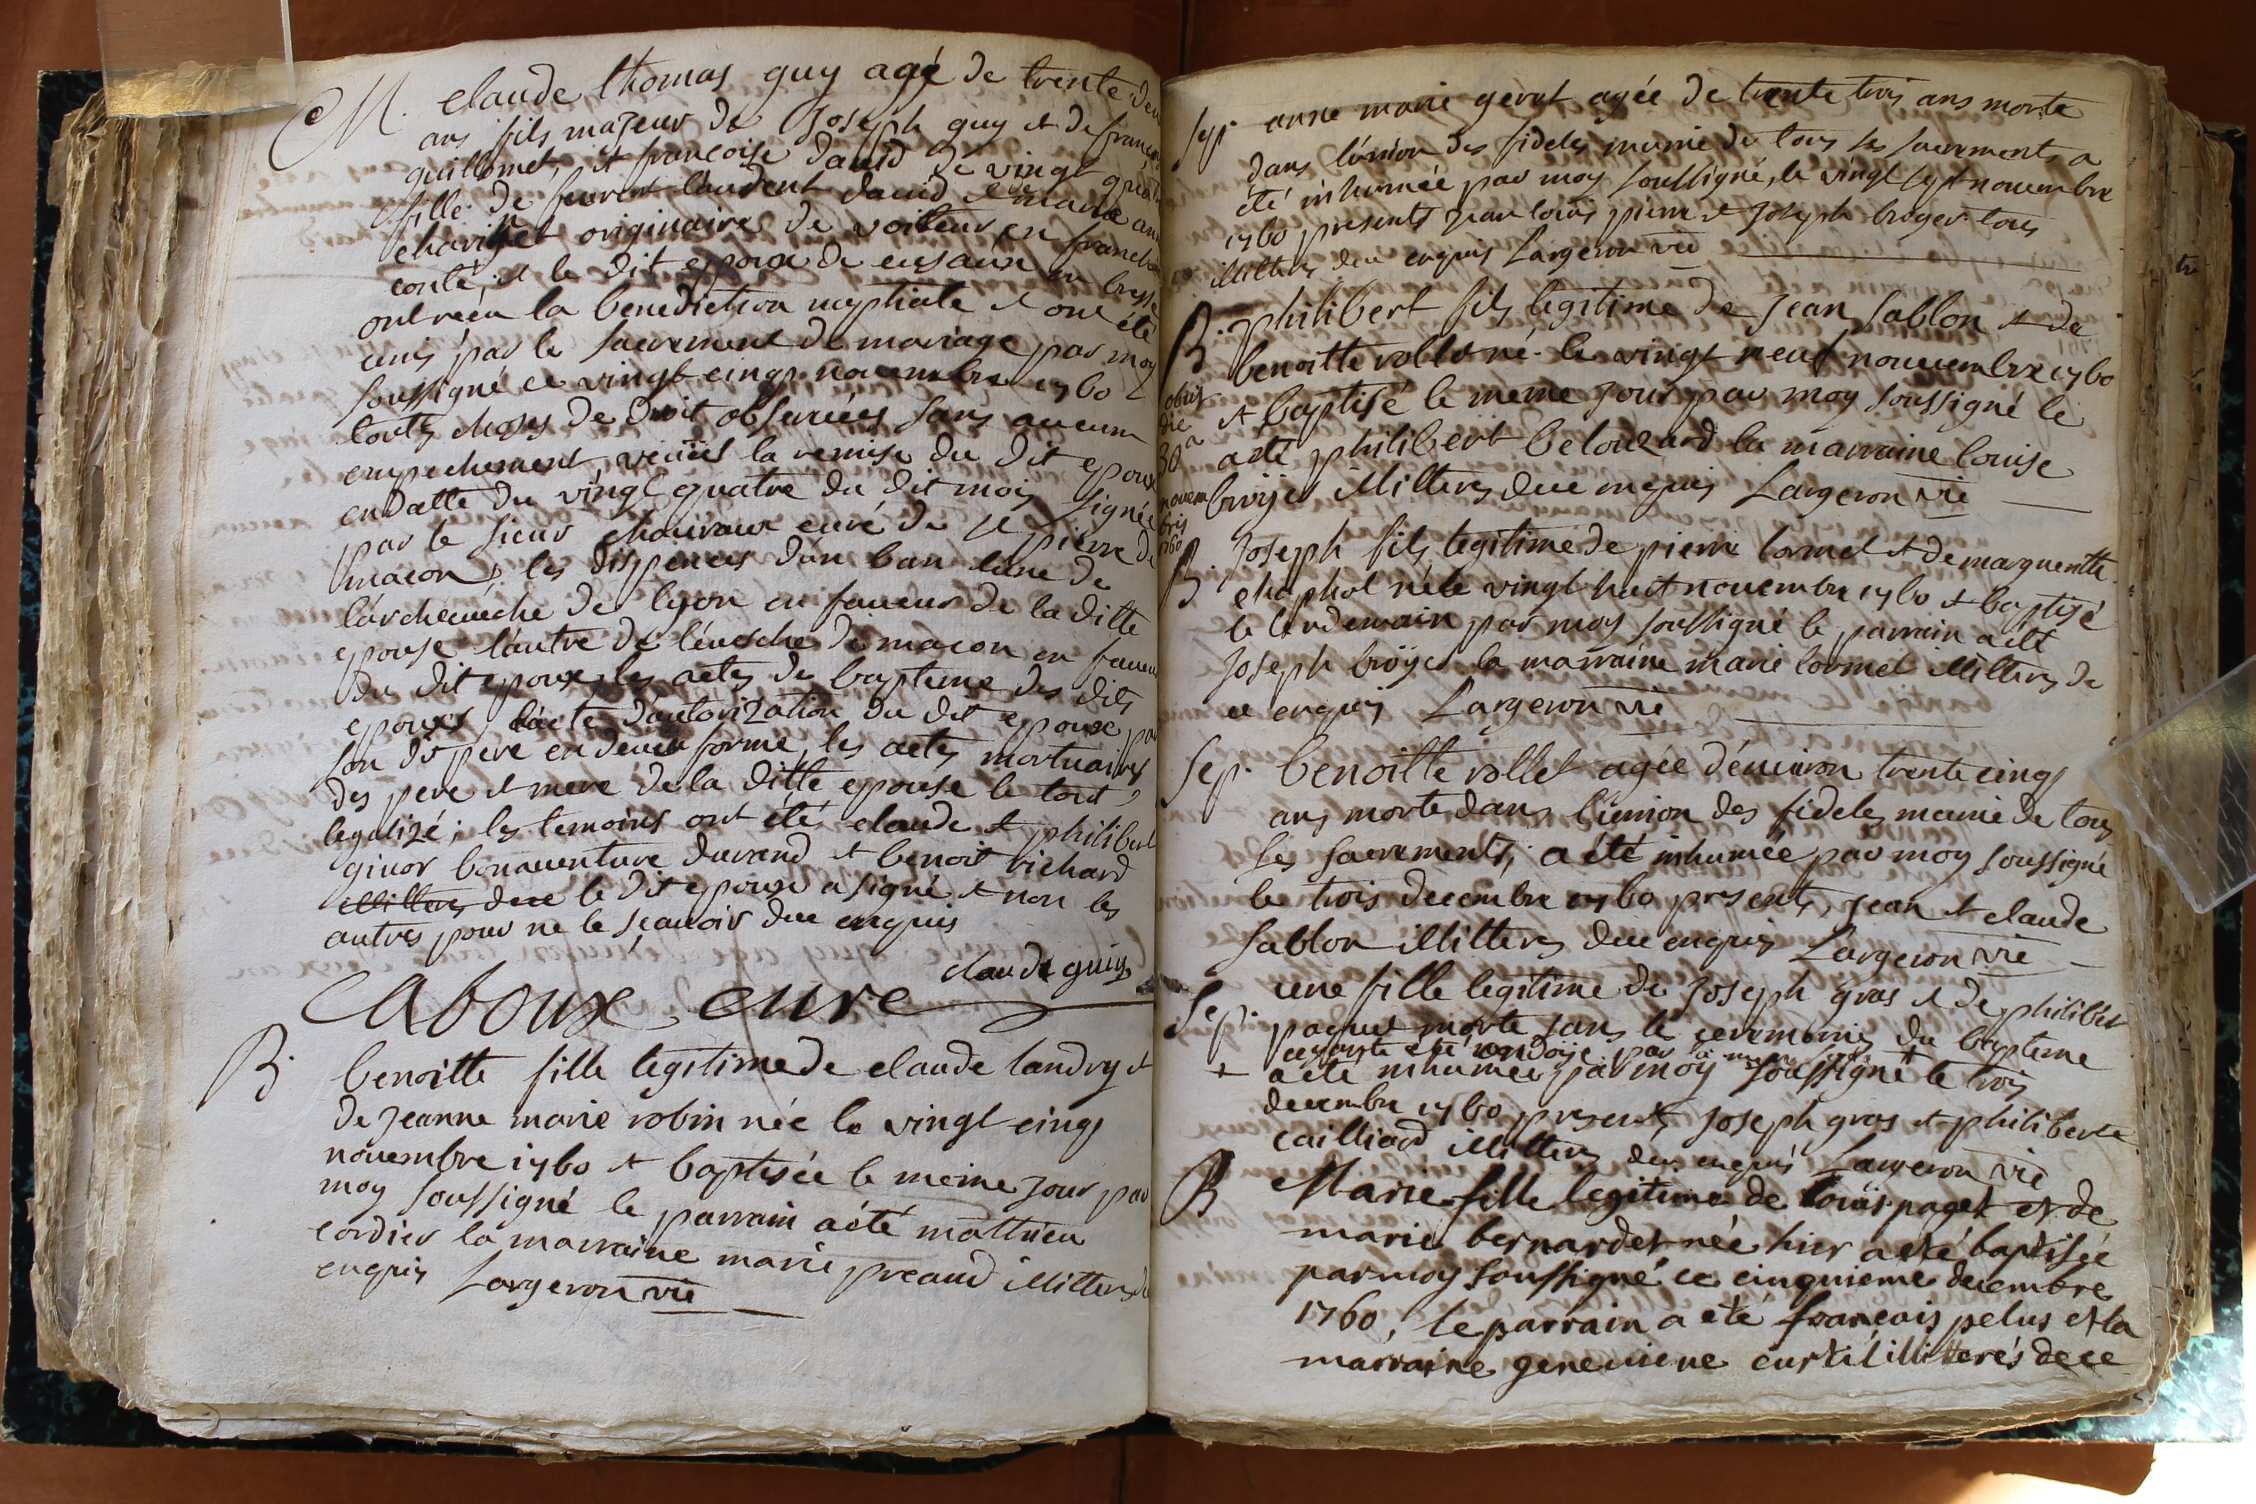 M. claude thomas guy agé de trente deux
ans fils majeur de Joseph guy et de françoise
guillemet, et françoise david de vingt quatre ans
fille de laurent david et marie
originaire de voiteur en franche
comté, et le dit epoux de cuisaux en bresse
ont reçu la benediction nuptiale et ont été
unis par le sacrement de mariage par moy
soussigné ce vingt cinq novembre 1760
touts choses de droit observées sans aucun
empechement, veües la remise du dit epoux
en datte du vingt quatre du dit mois signée
par le sieur chauvaux curé de st pierre de
macon, les dispences d'un ban lune de
l'archeveche de lyon en faveur de la ditte
epouse l'autre de l'eveche de macon en faveur
du dit epoux, les actes de bapteme des dits
epoux, l'acte d'autorization du dit epoux par
son dit pere en deue forme, les actes mortuaires
des pere et mere de la ditte epouse le tout
legalizé; les temoins ont été claude et philibert
ginor bonaventure durand et benoit richard
illitteres due le dit epoux a signé et non les
autres pour ne le sçavoir due enquis
claude guy
Laboux curé
B. benoitte fille legitime de claude landry et
de Jeanne marie robin née le vingt cinq
novembre 1760 et baptisée le meme jour par
moy soussigné le parrain a été matthieu
cordier la marraine marie preaud illitteres de
enquis Largeron vic
Sep. anne marie gerat agée de trente trois ans morte
dans l'union des fideles munie de tous les sacrements a
été inhumée par moy soussigné, le vingt sept novembre
1760 presents Jean louis pierre et Joseph broyer tous
illitteres due enquis Largeron vic
B. philibert fils legitime de Jean Sablon et de
benoitte rollet né le vingt neuf novembre 1760
et baptisé le meme jour par moy soussigné le
a été philibert belouzard la marraine louise
broyer illitteres due enquis Largeron vic
obiit
die
30a
novem
bris
1760
B. Joseph fils legitime de pierre cornet et de marguerite
chaphot né le vingt huit novembre 1760 et baptisé
le lendemain par moy soussigné le parrain a été
Joseph broyer la marraine marie cornet illitteres de
ce enquis Largeron vic
Sep. benoitte rollet agée d'environ trente cinq
ans morte dans l'union des fideles munie de tous
les sacrements, a été inhumée par moy soussigné
le trois decembre 1760 presents, Jean et claude
Sablon illitteres due enquis Largeron vic
Sep. une fille legitime de Joseph gras et de philiberte
paquet morte sans les ceremonies du bapteme
été ondoiie par
+ a été inhumée par moy soussigné le trois
decembre 1760 presents, Joseph gras et philiberte
cailliard illitteres due enquis Largeron vic
B Marie fille legitime de louis paget et de
marie bernardet née hier a été baptisée
par moy soussigné ce cinquieme decembre
1760, le parrain a été françois pelus et la
marraine genevieve curtil illitterés de ce